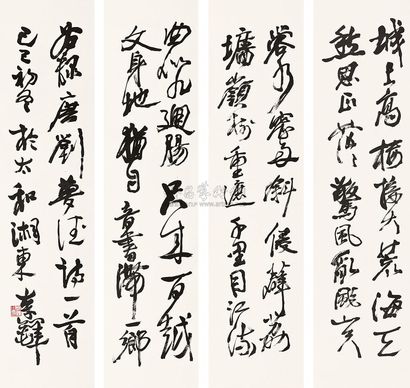 城上高樓接大荒海天
愁思正茫茫驚風亂颭芙
蓉水密雨斜侵薜荔
墻嶺樹重遮千里目江流
曲似九迴腸共來百越
文身地猶自音書滯一鄉
右錄唐劉夢得詩一首
己巳初於太和湘東李鐸